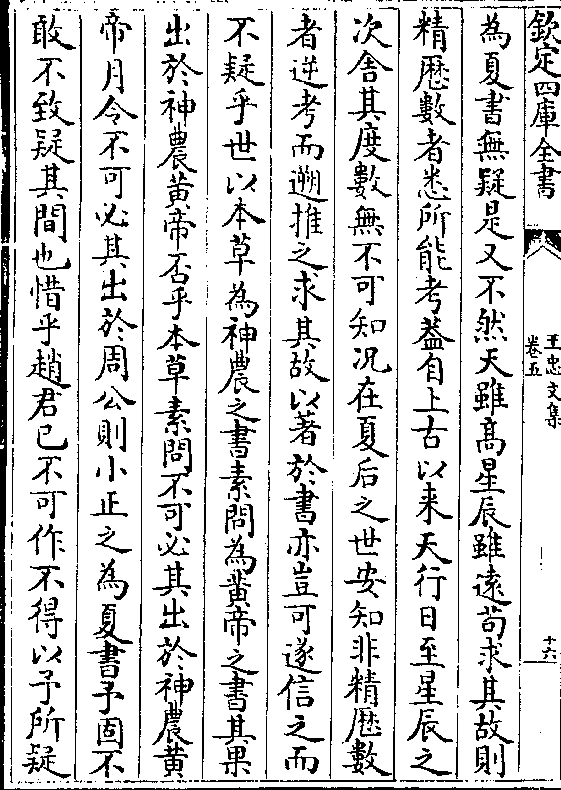 欽定四庫全書
王忠文集
卷五
十六
為夏書無疑是又不然天雖髙星辰雖遠苟求其故則
精厯數者悉所能考葢自上古以来天行日至星辰之
次舎其度數無不可知况在夏后之世安知非精厯數
者逆考而遡推之求其故以著於書亦豈可遂信之而
不疑乎世以本草為神農之書素問為黄帝之書其果
出於神農黄帝否乎本草素問不可必其出於神農黄
帝月令不可必其出於周公則小正之為夏書予固不
敢不致疑其間也惜乎趙君已不可作不得以予所疑